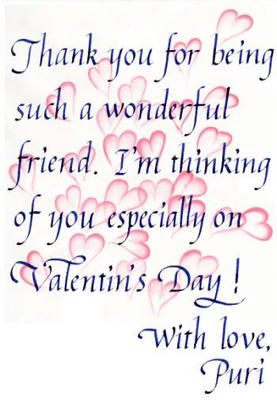 Thank you for being
such a wonderful
friend. I'm thinking
of you especially on
Valentin's Day!
With love,
Puri